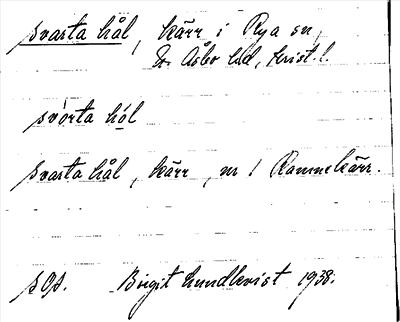 svarta hål, kärr i Rya sn,
Ö. Åsbo hd, krist. l.
svǫ́rta hǫ́l
svarta hål, kärr, nr 1 Ramnekärr.
sOs. Birgit Lundkvist 1938.